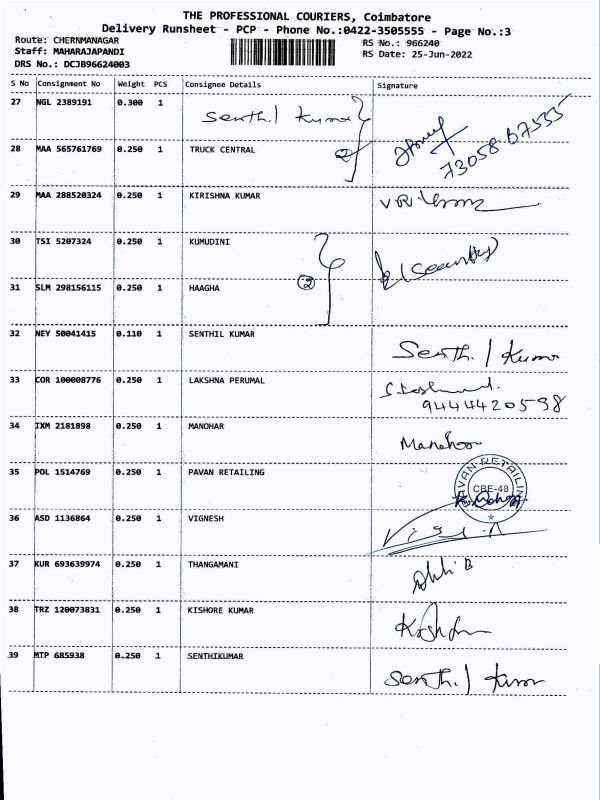 THE PROFESSIONAL COURIERS, Coimbatore
Delivery Runsheet - PCP - Phone No.:0422-3505555 - Page No.:3
Route: CHERNMANAGAR
RS No.: 966240
Staff: MAHARAJAPANDI
RS Date: 25-Jun-2022
DRS No.: DCJB96624003
S No Consignment No Weight PCS Consignee Details Signature
27 NGL 2389191 0.300 1 Senthil Kumar
28 MAA 565761769 0.250 1 TRUCK CENTRAL 73058 67555
29 MAA 288520324 0.250 1 KIRISHNA KUMAR
30 TSI 5207324 0.250 1 KUMUDINI (Security)
31 SLM 298156115 0.250 1 HAAGHA
32 NEY 50041415 0.110 1 SENTHIL KUMAR Senthil Kumar
33 COR 100008776 0.250 1 LAKSHNA PERUMAL
9444420598
34 IXM 2181898 0.250 1 MANOHAR Manohar
35 POL 1514769 0.250 1 PAVAN RETAILING PAVAN RETAILING CBE-48
36 ASD 1136864 0.250 1 VIGNESH
37 KUR 693639974 0.250 1 THANGAMANI
38 TRZ 120073831 0.250 1 KISHORE KUMAR
39 MTP 685938 0.250 1 SENTHIKUMAR Senthil Kumar